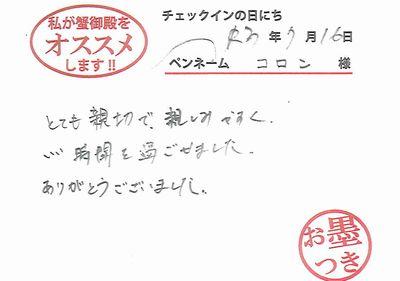 私が蟹御殿を
オススメ
します!!
チェックインの日にち
年 7 月 16 日
ペンネーム コロン 様
とても親切で、親しみやすく、
いい時間を過ごせました。
ありがとうございました。
お墨
つき